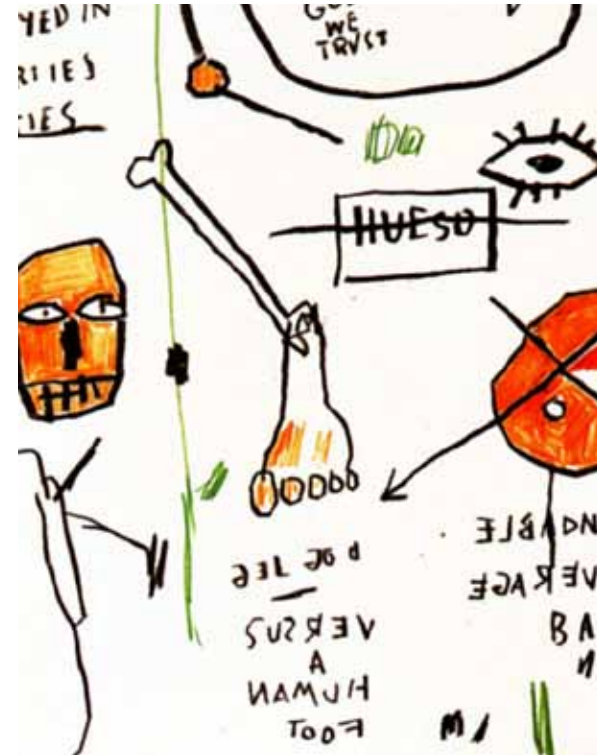 YED IN
RTIES
TIES
GO
WE
TRUST
HUESO
DOG LEG
VERSUS
A
HUMAN
FOOT
NDABLE
VERAGE
BA